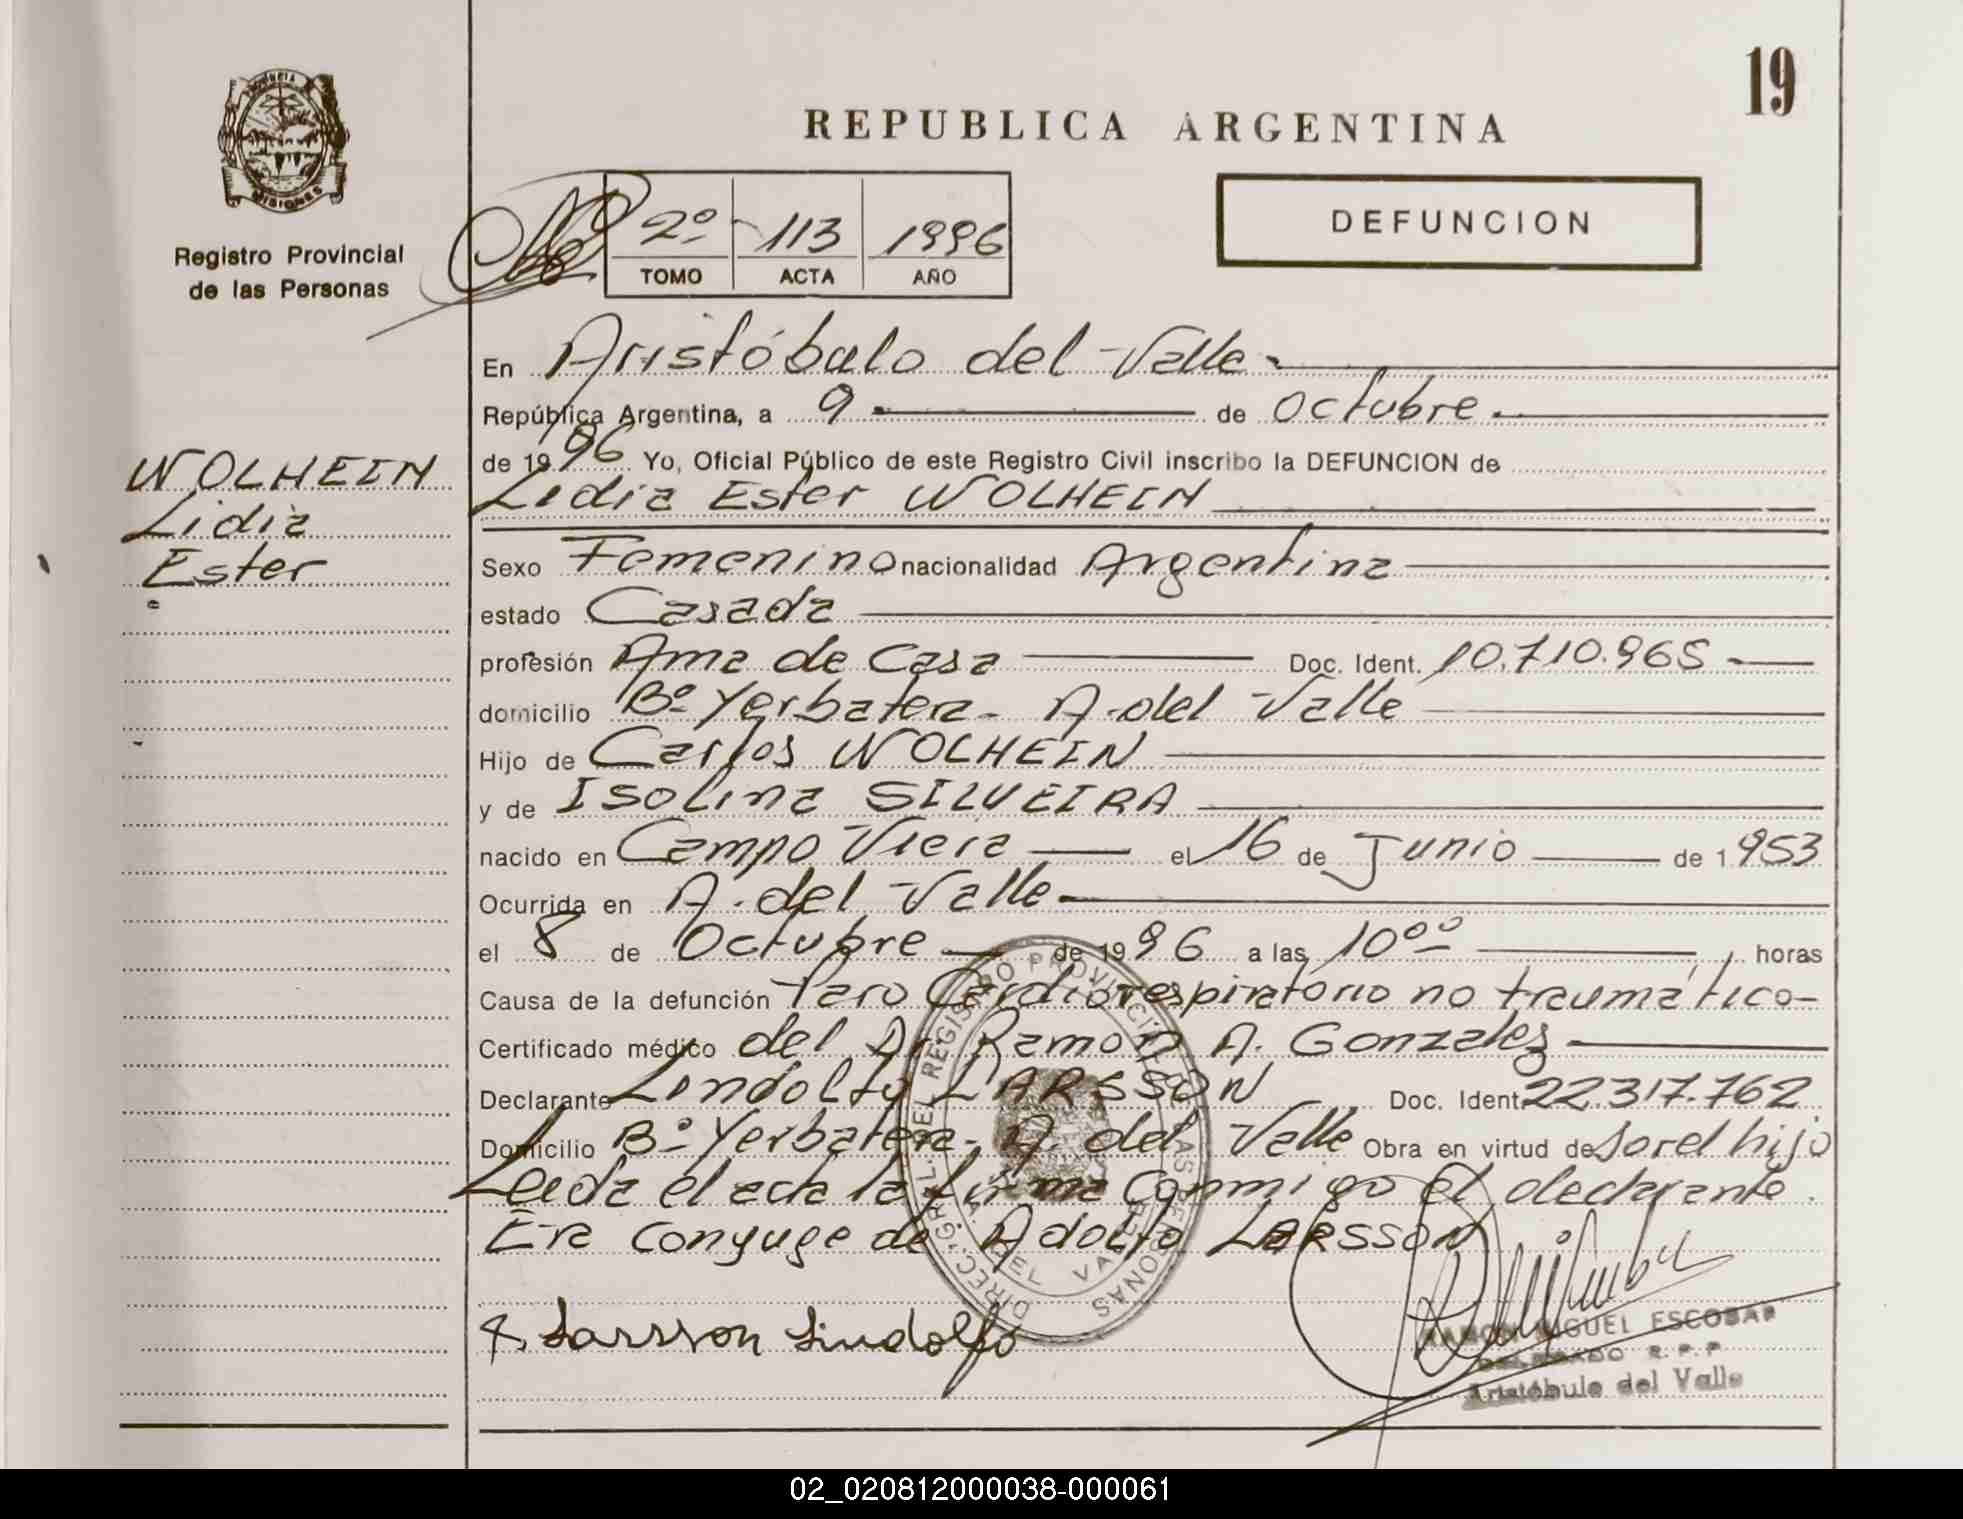 19
REPUBLICA ARGENTINA
PROVINCIA
MISIONES
Registro Provincial
de las Personas
2º 113 1996
TOMO ACTA AÑO
DEFUNCION
En Aristóbulo del Valle
República Argentina, a 9 de Octubre
de 1996 Yo, Oficial Público de este Registro Civil inscribo la DEFUNCION de
WOLHEIN
Lidia
Ester
Lidia Ester WOLHEIN
Sexo Femenino nacionalidad Argentina
estado Casada
profesión Ama de Casa Doc. Ident. 10.710.965
domicilio Bº Yerbatera - A. del Valle
Hijo de Carlos WOLHEIN
y de Isolina SILVEIRA
nacido en Campo Viera el 16 de Junio de 1953
Ocurrida en A. del Valle
el 8 de Octubre de 1996 a las 10ºº horas
Causa de la defunción Paro Cardiorespiratorio no traumático-
Certificado médico del Dr. Ramon A. Gonzalez
Declarante Lindolfo LARSSON Doc. Ident. 22.317.762
Domicilio Bº Yerbatera - A. del Valle Obra en virtud de ser el hijo
Leida el acta la firma conmigo el declarante.
Era conyuge de Adolfo LARSSON
DIREC. GRAL. DEL REGISTRO PROVINCIAL DE LAS PERSONAS
A. DEL VALLE
Larsson Lindolfo
RAMON MIGUEL ESCOBAR
DELEGADO R.P.P
Aristóbulo del Valle
02_020812000038-000061